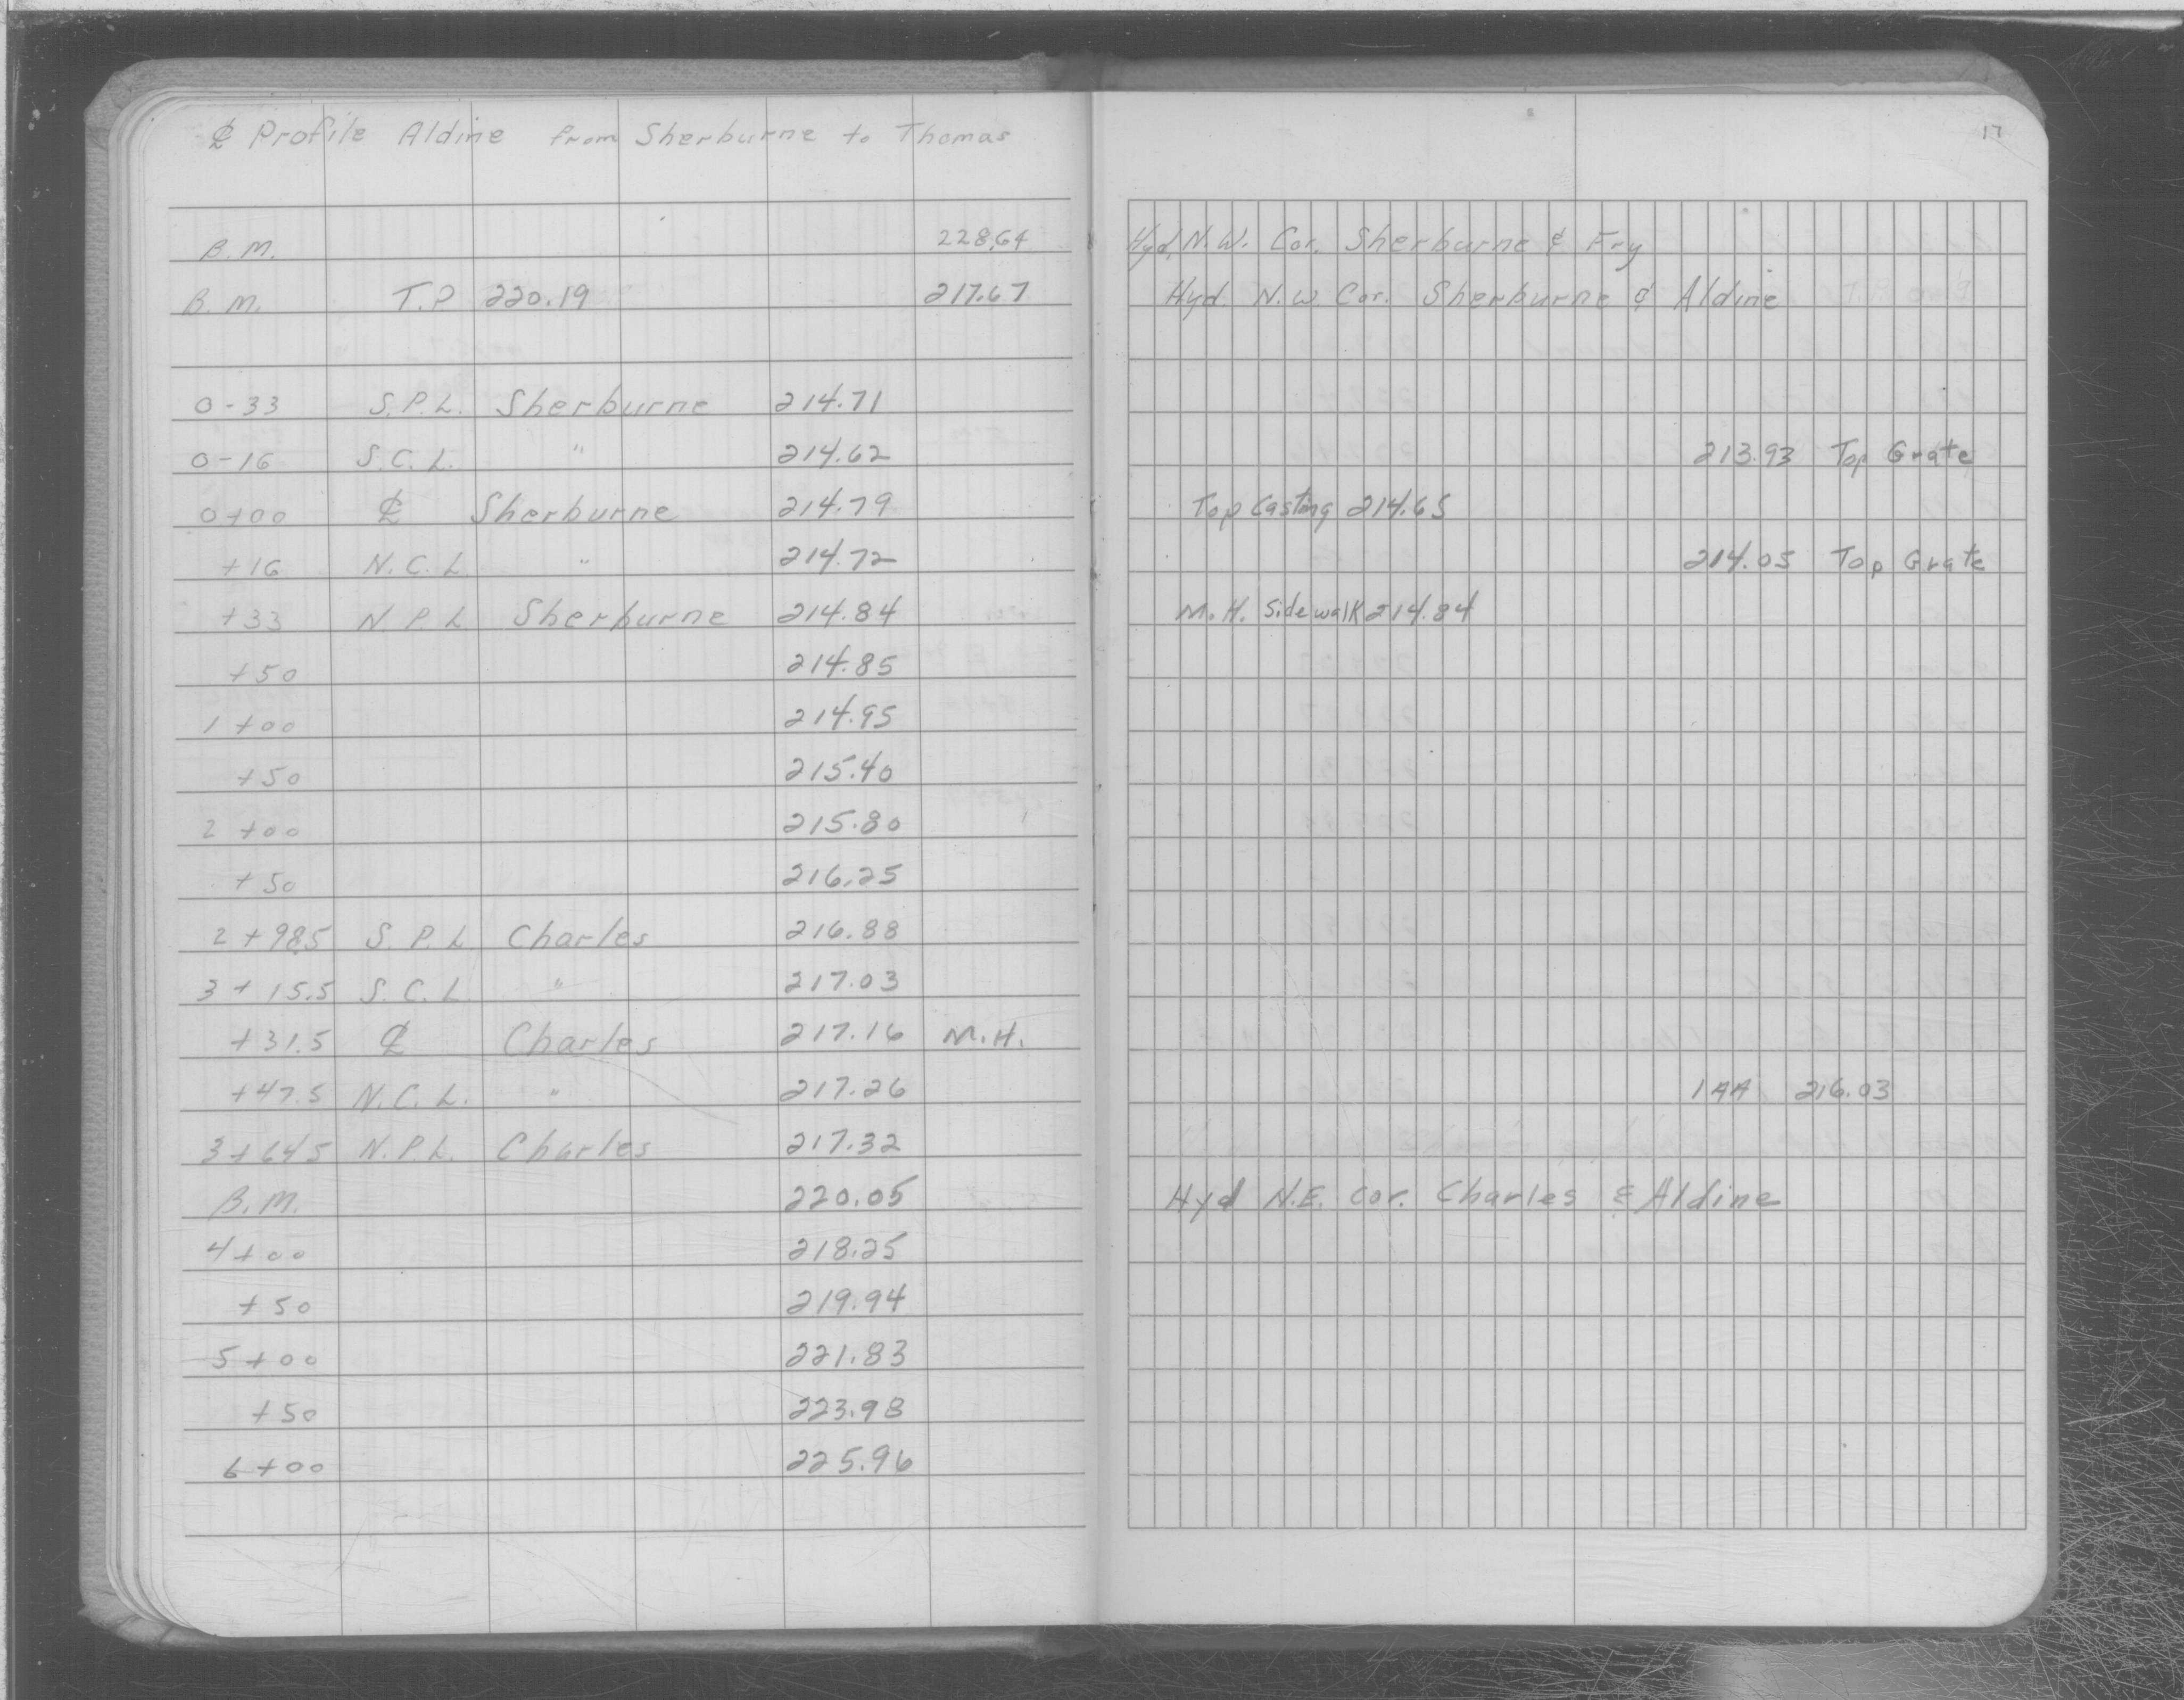 ℄ Profile Aldine from Sherburne to Thomas
17
B.M. 228.64 Hyd. N.W. Cor. Sherburne & Fry
B.M. T.P 220.19 217.67 Hyd. N.W. Cor. Sherburne & Aldine
0-33 S.P.L. Sherburne 214.71
0-16 S.C.L. " 214.62 213.93 Top Grate
0+00 ℄ Sherburne 214.79 Top Casting 214.65
+16 N.C.L " 214.72 214.05 Top Grate
+33 N.P.L Sherburne 214.84 M.H. Sidewalk 214.84
+50 214.85
1+00 214.95
+50 215.40
2+00 215.80
+50 216.25
2+98.5 S.P.L Charles 216.88
3+15.5 S.C.L " 217.03
+31.5 ℄ Charles 217.16 M.H.
+47.5 N.C.L. " 217.26 1AA 216.03
3+64.5 N.P.L. Charles 217.32
B.M. 220.05 Hyd N.E. Cor. Charles & Aldine
4+00 218.25
+50 219.94
5+00 221.83
+50 223.98
6+00 225.96